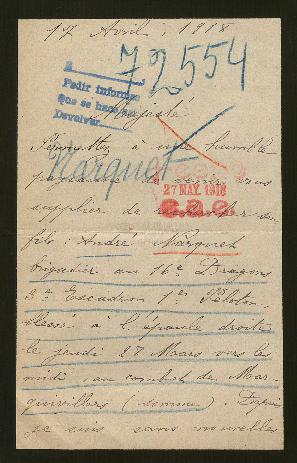 17 Avril, 1918
72554
Pedir informes
que se hace en
Devolver
Majesté
Permettez à une humble
paysanne de venir vous
27 MAY. 1918
supplier de rechercher son
fils : André Marquet
Marquet
brigadier au 16e Dragons
3e Escadron 1er Peloton
blessé à l'épaule droite
le jeudi 28 Mars vers les
midi au combat de Mar-
quivillers (Somme). Depuis
je suis sans nouvelles